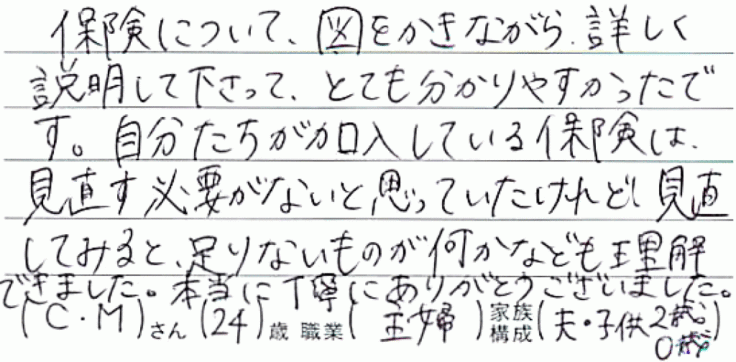 保険について、図をかきながら、詳しく
説明して下さって、とても分かりやすかったで
す。自分たちが加入している保険は、
見直す必要がないと思っていたけれど、見直
してみると、足りないものが何かなども理解
できました。本当に丁寧にありがとうございました。
(C・M)さん(24)歳 職業(主婦)家族構成(夫・子供2歳。0歳)